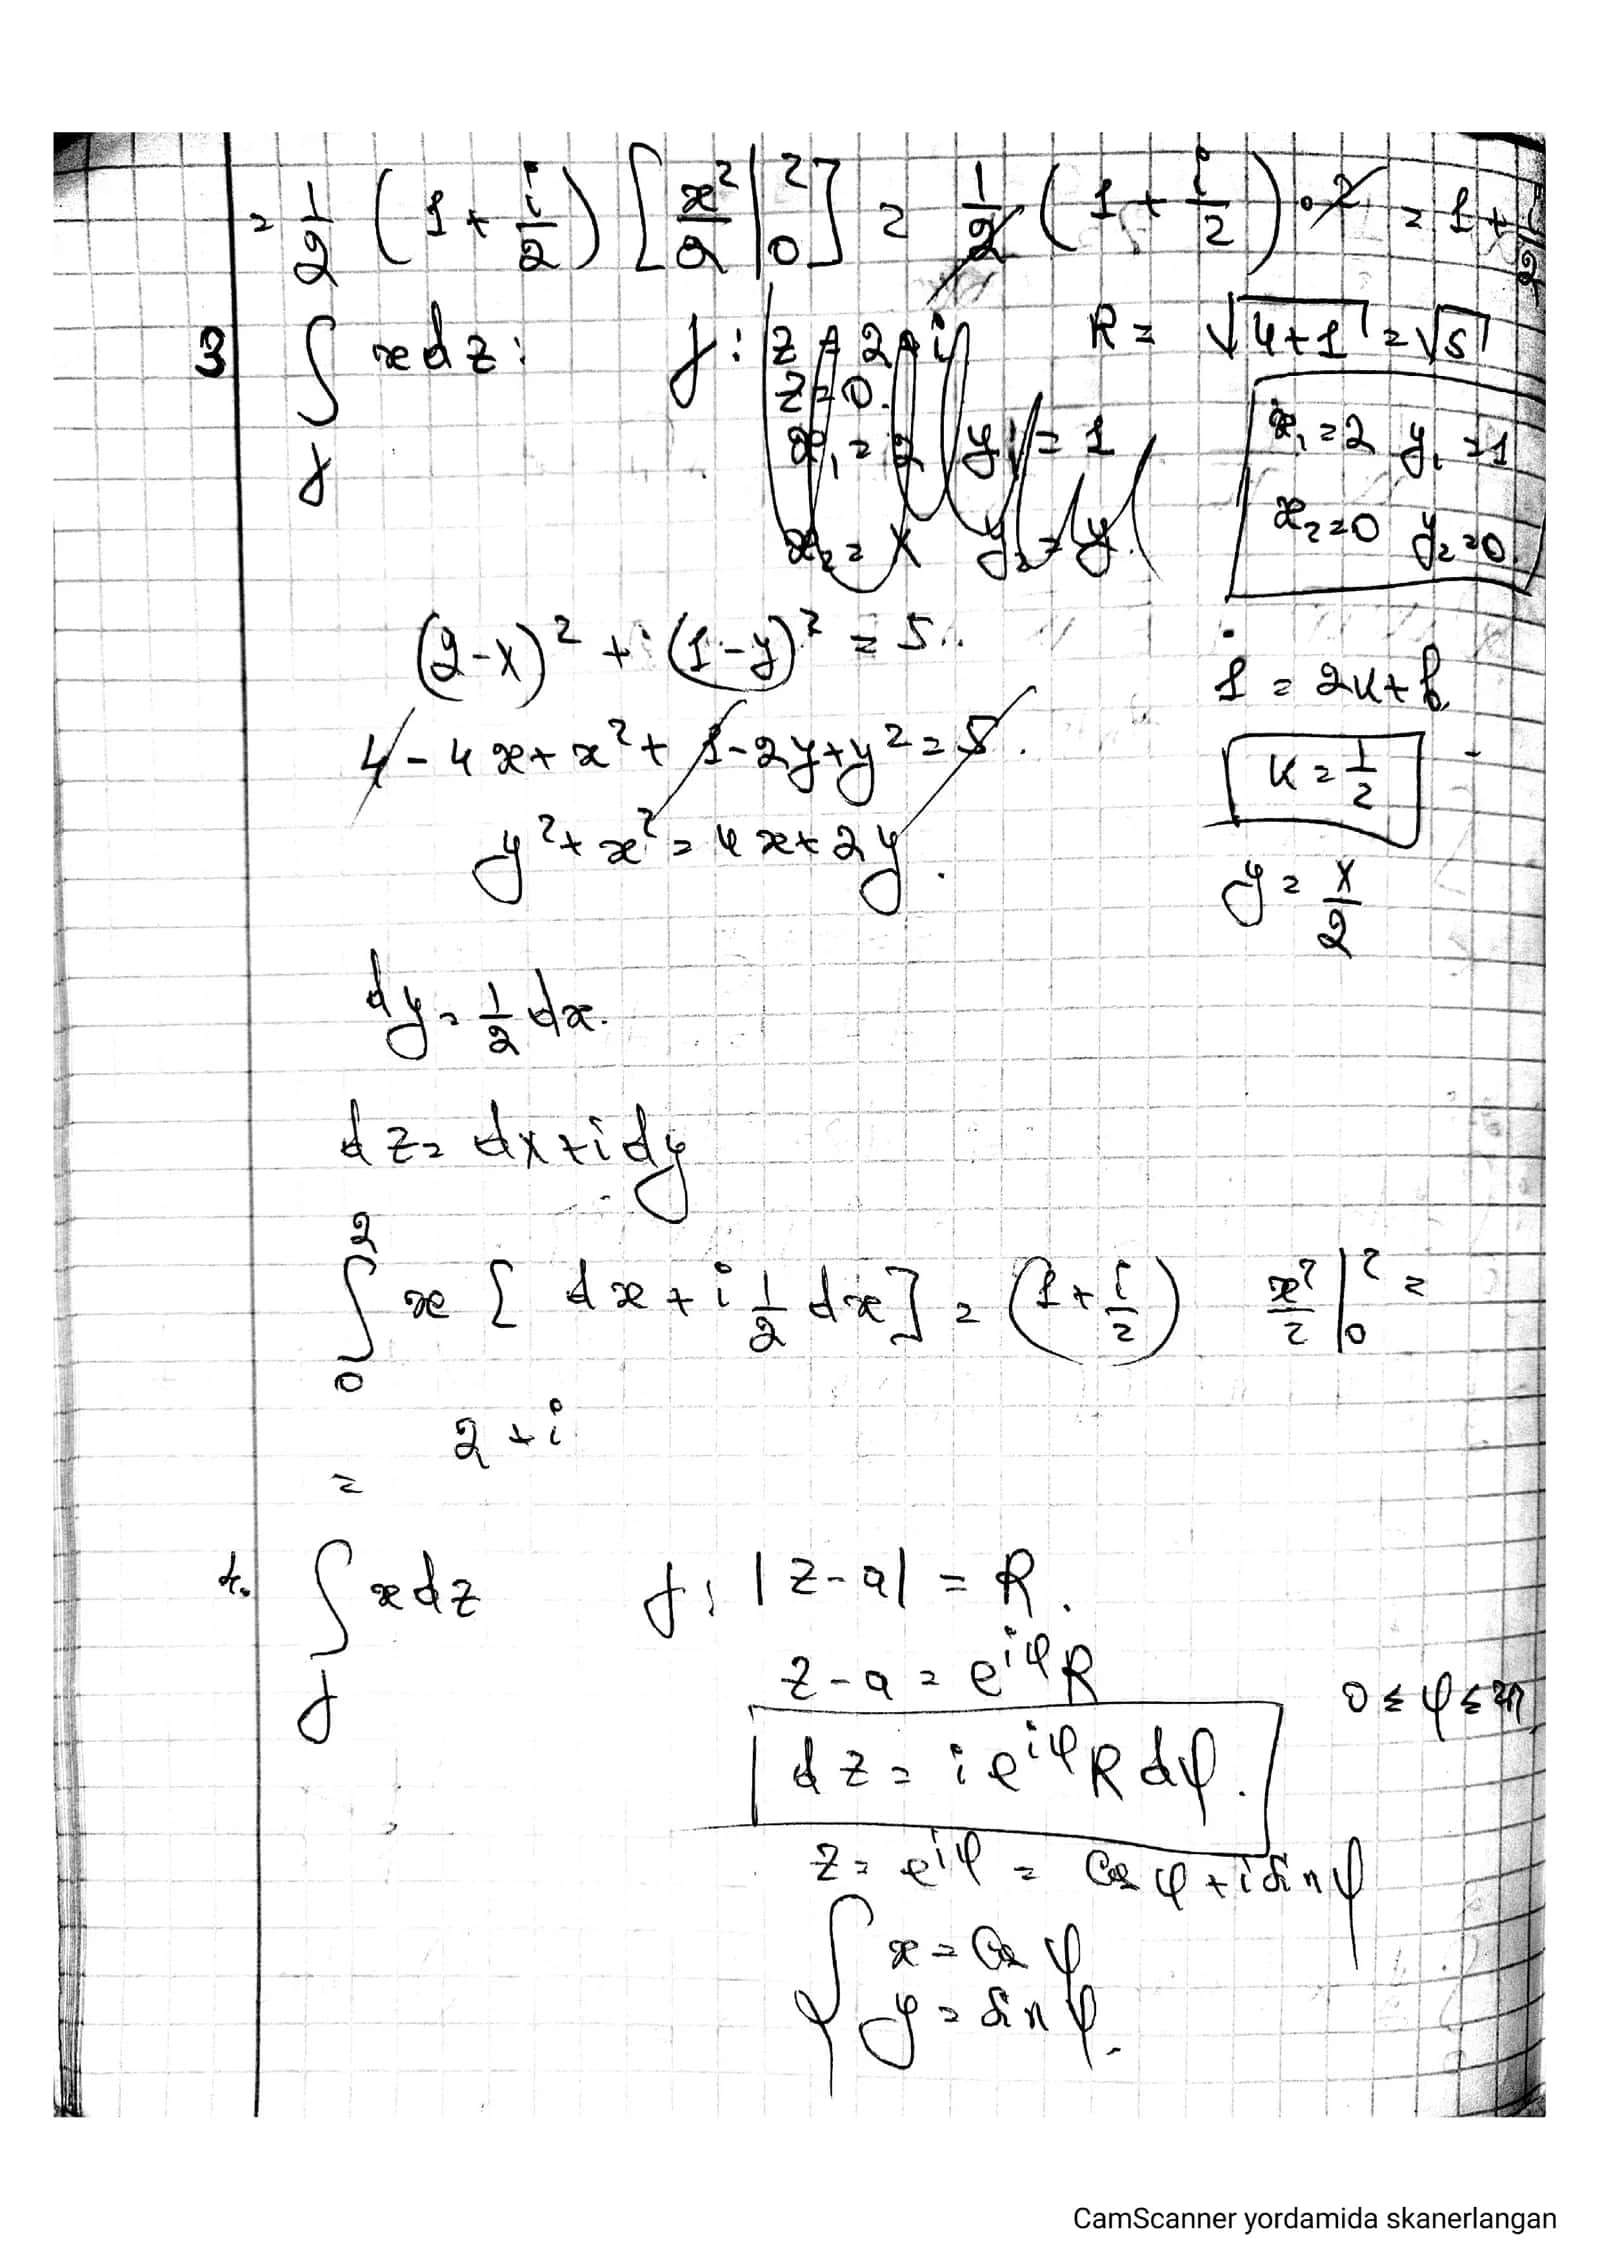 = 1/2 (1 + i/2) [x²/2 |₀²] = 1/2 (1 + i/2) · 2 = 1 + i/2
3 ∫γ x dz: γ: z = 2 + i R = √(4+1) = √5
z = 0.
x₁ = 2 y₁ = 1 x₁ = 2 y₁ = 1
x₂ = x y₂ = y x₂ = 0 y₂ = 0.
(2 - x)² + (1 - y)² = 5.
1 = 2k + b
4 - 4x + x² + 1 - 2y + y² = 5.
k = 1/2
y² + x² = 4x + 2y.
y = x/2
dy = 1/2 dx.
dz = dx + i dy
∫₀² x [dx + i 1/2 dx] = (1 + i/2) x²/2 |₀² =
= 2 + i
4. ∫γ x dz γ: |z - a| = R.
z - a = e^{iφ} R 0 ≤ φ ≤ 2π
dz = i e^{iφ} R dφ.
z = e^{iφ} = Cos φ + i sin φ
x = Cos φ
y = sin φ.
CamScanner yordamida skanerlangan